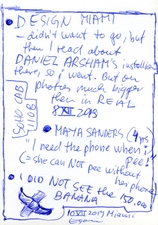 DESIGN MIAMI
— didn't want to go, but
then I read about
DANIEL ARSHAM's installation
there, so I went. But on
photos much bigger
then in REAL
8 XII 2019
SOHO CAB
MAYA SANDERS (4 yrs
"I need the phone when I
pee!
(= she can NOT pee without
her phone)
I DID NOT SEE the 150.000
BANANA
10 XII 2019 Miami